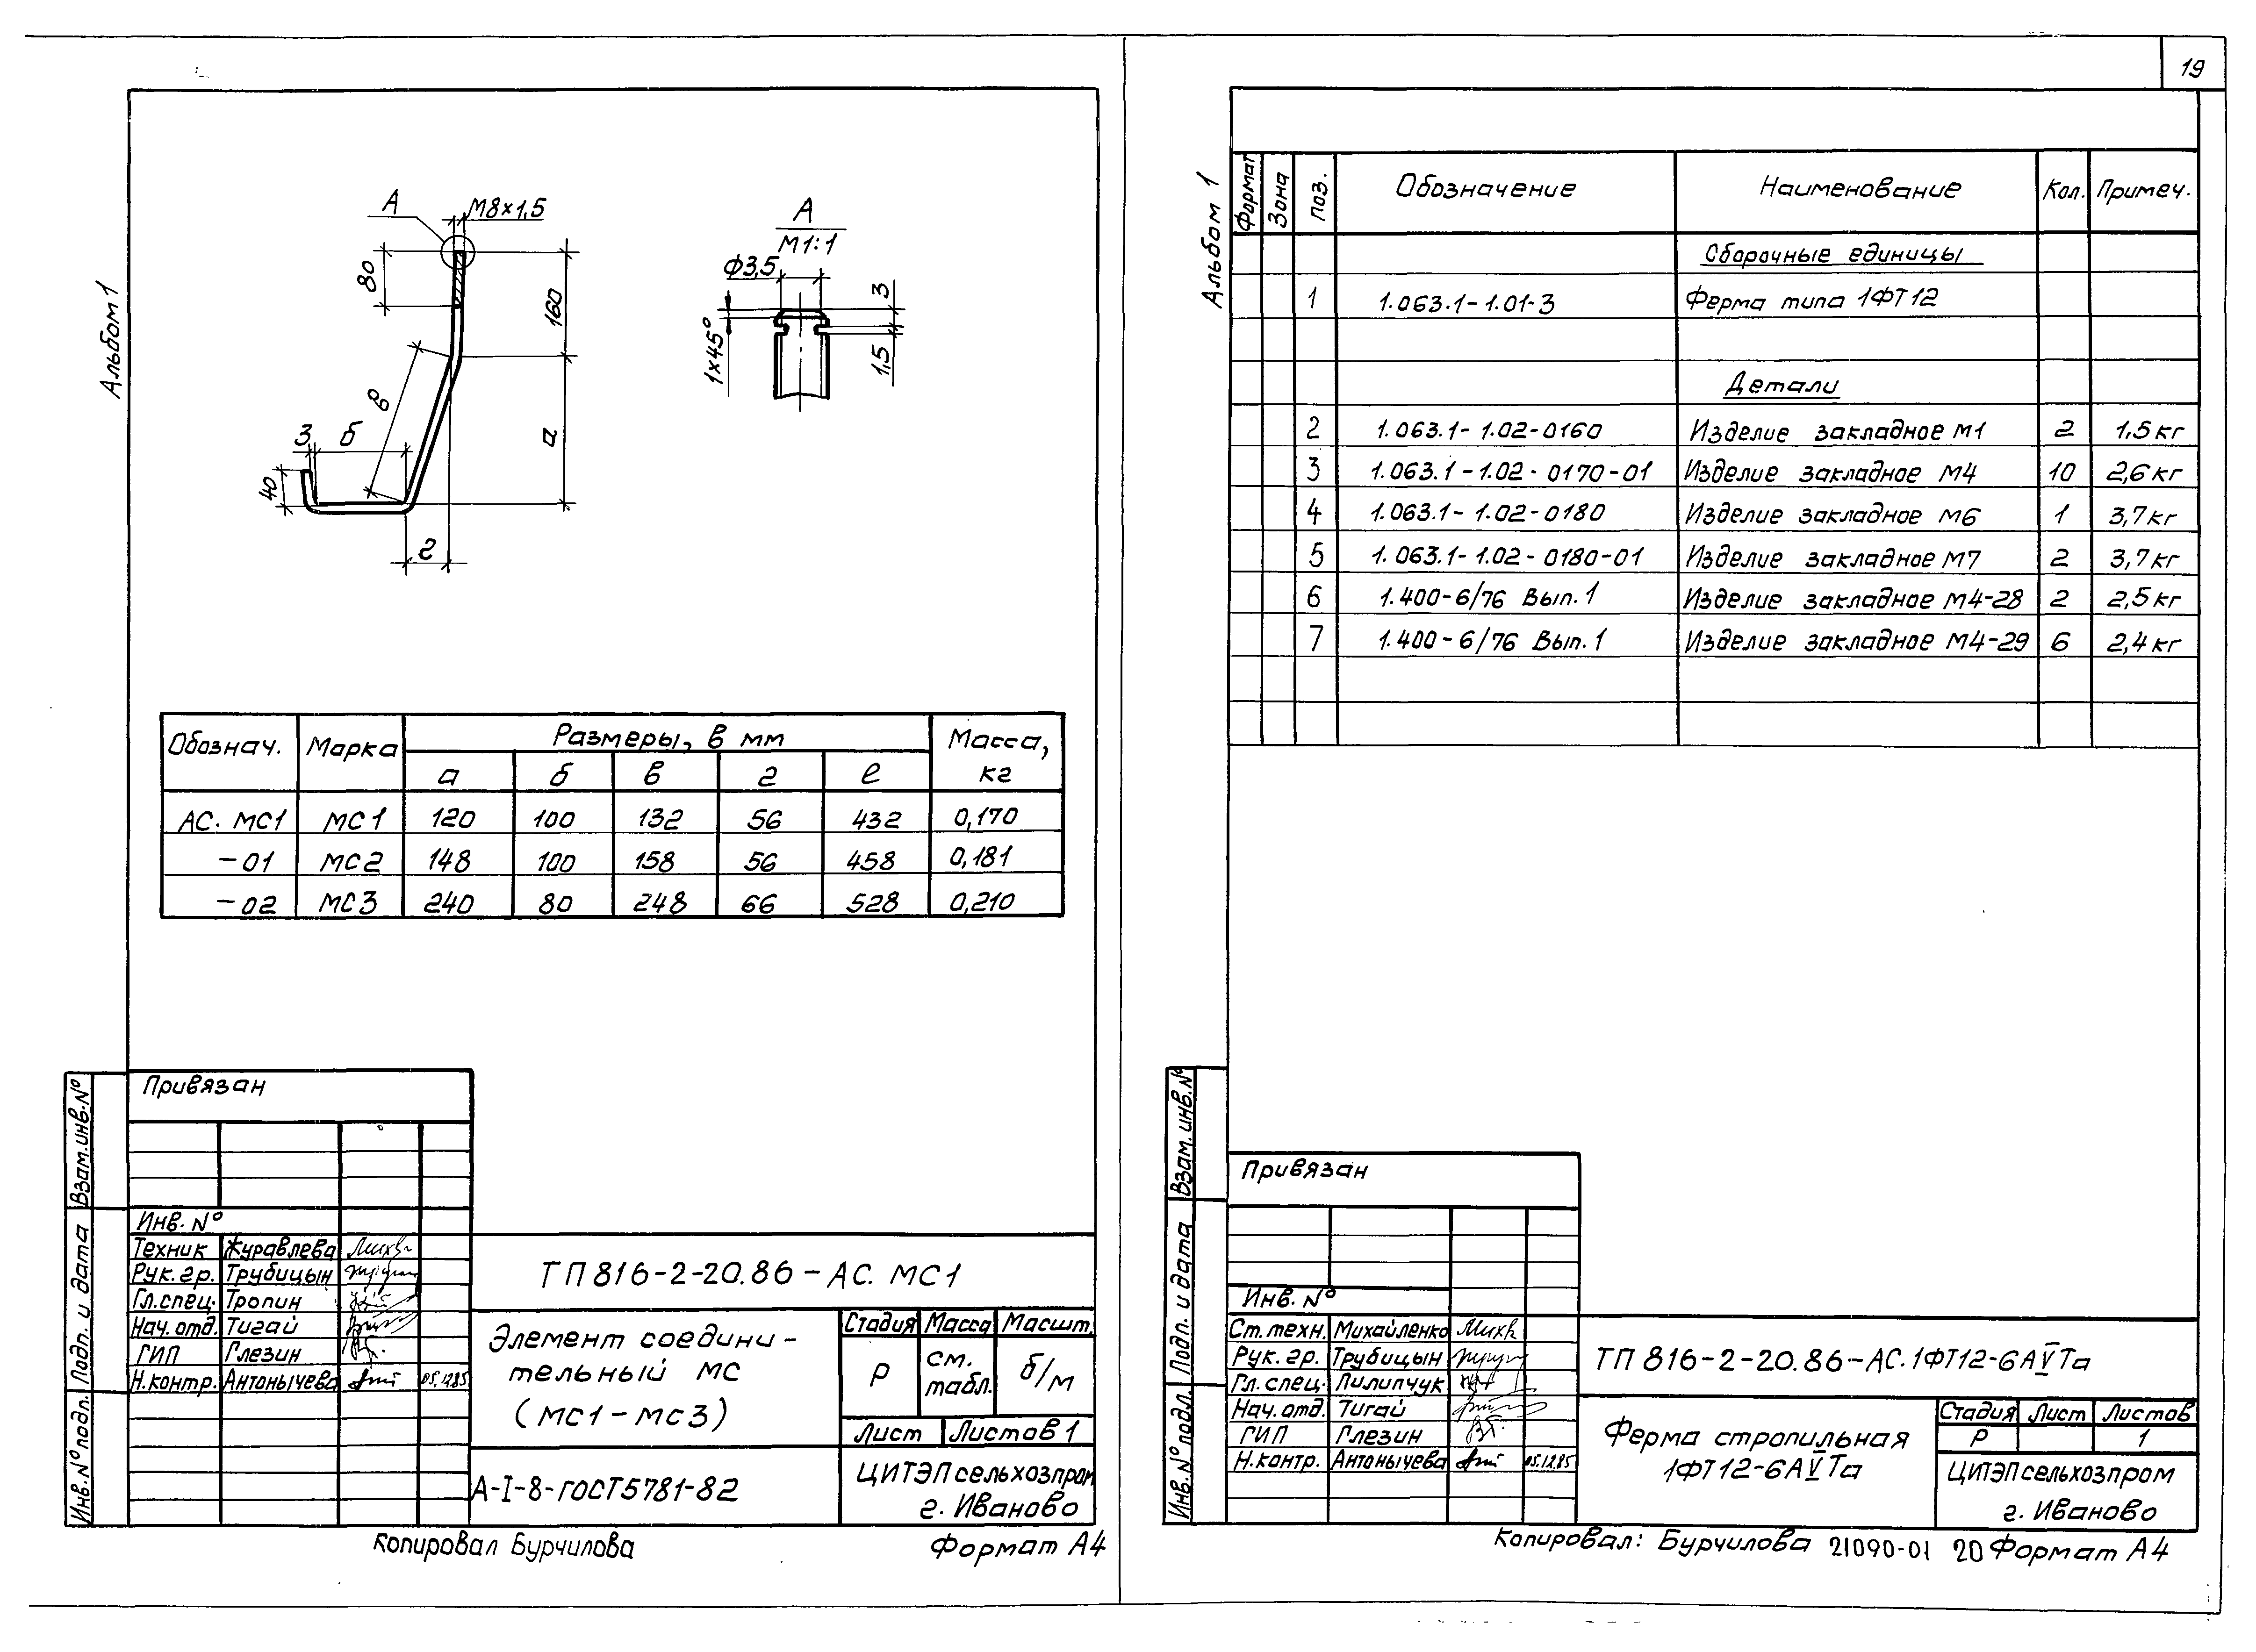 19
Альбом 1
А
М8×1,5
80
160
в
а
3
б
40
г
А
М1:1
Ф3,5
3
1×45°
1,5
Обознач. Марка Размеры, в мм Масса, кг
а б в г ℓ
АС. МС1 МС1 120 100 132 56 432 0,170
-01 МС2 148 100 158 56 458 0,181
-02 МС3 240 80 248 66 528 0,210
Привязан
Инв. №
Техник Журавлева
Рук. гр. Трубицын
Гл. спец. Тропин
Нач. отд. Тигай
ГИП Глезин
Н. контр. Антонычева 05.12.85
Взам. инв. №
Подп. и дата
Инв. № подл.
ТП 816-2-20.86 - АС. МС1
Элемент соедини-
тельный МС
(МС1-МС3)
Стадия Масса Масшт.
Р см. табл. б/м
Лист Листов 1
А-I-8-ГОСТ 5781-82
ЦИТЭПсельхозпром
г. Иваново
Копировал Бурчилова Формат А4
Альбом 1
Формат Зона Поз. Обозначение Наименование Кол. Примеч.
Сборочные единицы
1 1.063.1-1.01-3 Ферма типа 1ФТ12
Детали
2 1.063.1-1.02-0160 Изделие закладное М1 2 1,5 кг
3 1.063.1-1.02-0170-01 Изделие закладное М4 10 2,6 кг
4 1.063.1-1.02-0180 Изделие закладное М6 1 3,7 кг
5 1.063.1-1.02-0180-01 Изделие закладное М7 2 3,7 кг
6 1.400-6/76 Вып. 1 Изделие закладное М4-28 2 2,5 кг
7 1.400-6/76 Вып. 1 Изделие закладное М4-29 6 2,4 кг
Привязан
Инв. №
Ст. техн. Михайленко
Рук. гр. Трубицын
Гл. спец. Пилипчук
Нач. отд. Тигай
ГИП Глезин
Н. контр. Антонычева 05.12.85
Взам. инв. №
Подп. и дата
Инв. № подл.
ТП 816-2-20.86-АС.1ФТ12-6АVТа
Ферма стропильная
1ФТ12-6АVТа
Стадия Лист Листов
Р 1
ЦИТЭПсельхозпром
г. Иваново
Копировал: Бурчилова 21090-01 20 Формат А4